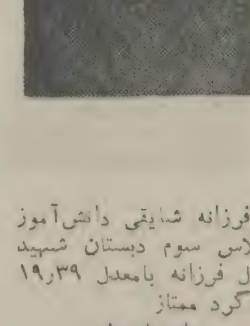 فرزانه شایقی دانش‌آموز
لاس سوم دبستان شهید
ل فرزانه بامعدل ۱۹٫۳۹
گرد ممتاز